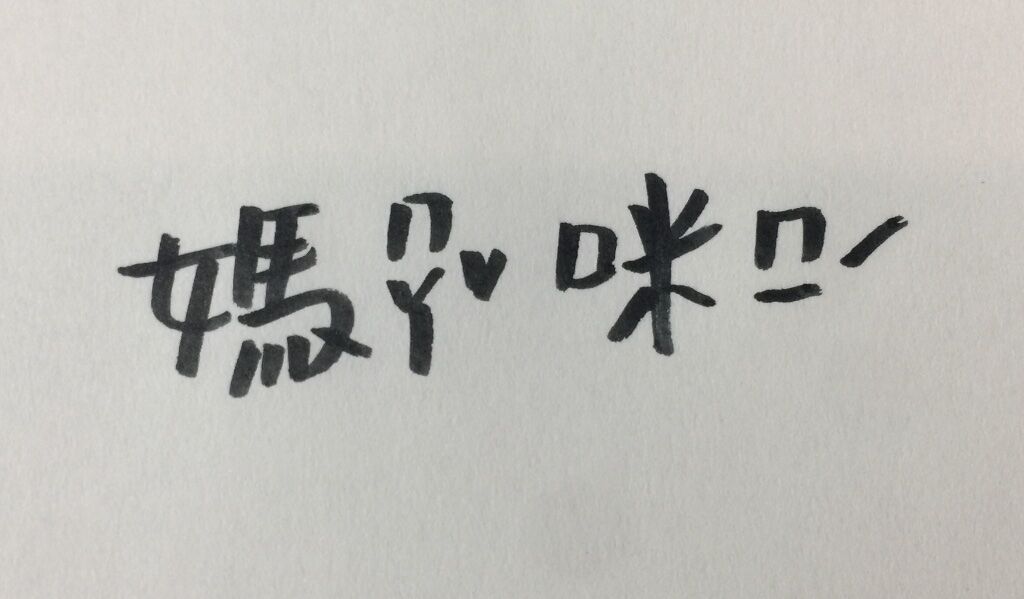 媽ㄇㄚˇ咪ㄇㄧˊ